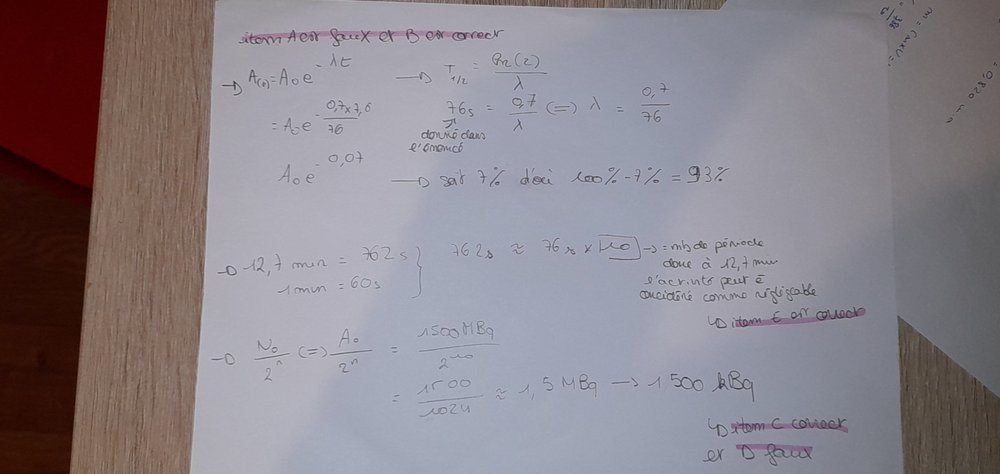 item A est faux et B est correct
→ A(t) = A₀e^-λt → T 1/2 = ln(2)/λ
= A₀e^-0,7x7,6/76
76s = 0,7/λ <=> λ = 0,7/76
donné dans
l'énoncé
A₀e^-0,07 → soit 7% d'où 100%-7% = 93%
→ 12,7 min = 762s
1 min = 60s
762s ≈ 76s x 10 → = nb de période
donc à 12,7 min
l'activité peut ê
considéré comme négligeable
↳ item E est correct
→ N₀/2ⁿ <=> A₀/2ⁿ = 1500MBq/2¹⁰
= 1500/1024 ≈ 1,5 MBq → 1 500 kBq
↳ item C correct
et D faux
= 0,820